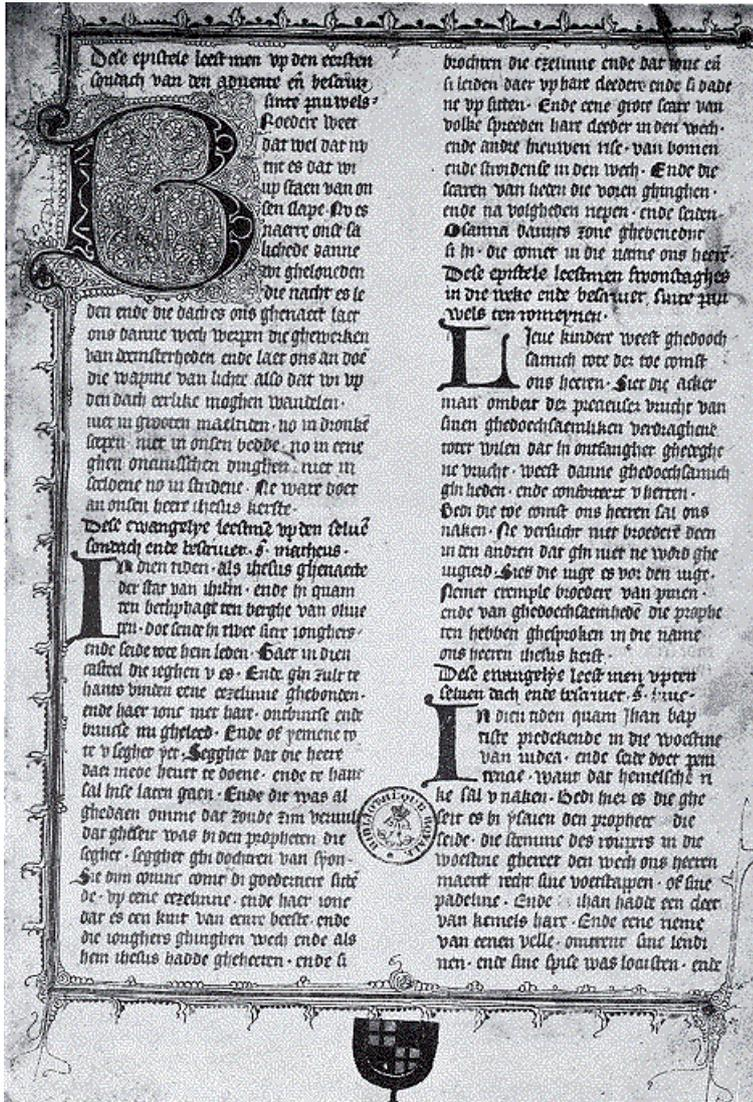 Dese epistele leest men vp den eersten
sondach van den aduente eñ bescriuet
sinte pauwels
Broedere weet
dat wel dat nv
tijt es dat wi
vp staen van on
sen slape · Nv es
naerre onse sa
lichede danne
wi gheloueden
die nacht es le
den ende die dach es ons ghenaect laet
ons danne wech werpen die ghewerken
van deemsterheden ende laet ons an doē
die wapine van lichte also dat wi vp
den dach eerlike moghen wandelen ·
niet in grooten maeltiden · no in dronkē
scepen · niet in onsen bedde · no in eene
ghen onkuusschen dinghen · niet in
sceldene no in stridene · Ne ware doet
an onsen heere ihesus kerste ·
Dese ewangelye leestmē vp den seluē
sondach ende bescriuet · s̄ · matheus ·
In dien tiden · als ihesus ghenaecte
der stat van ihrlm · ende hi quam
ten bethphage ten berghe van oliue
ten · doe sende hi twee siere ionghers ·
ende seide toe hem leden · Gaet in dien
casteel die ieghen v es · Ende ghi zult te
hants vinden eene eezelinne ghebonden ·
ende haer ionc met hare · ontbintse ende
bringse mi gheleed · Ende of yemene yet
te v seghet yet · Segghet dat die heere
daer mede heuet te doene · ende te hant
sal hise laten gaen · Ende dit was al
ghedaen omme dat zoude zijn veruult
dat gheseit was bi den propheten die
seghet · segghet ghi dochtren van syon ·
Sie dijn coninc comt di goedertiere sittē
de · vp eene eezelinne · ende haer ionc
dat es een kint van eenre beeste · ende
die ionghers ghinghen wech ende als
hem ihesus hadde gheheeten · ende si
brochten die ezelinne ende dat ionc eñ
si leiden daer vp hare cleedere ende si dade
ne vp sitten · Ende eene grote scare van
volke spreeden hare cleeder in den wech ·
ende andre hieuwen rise · van bomen
ende stroidense in den wech · Ende die
scaren van lieden die voren ghinghen ·
ende na volgheden riepen · ende seiden ·
Osanna dauits zone ghebenedijt
si hi · die comet in die name ons heerē
Dese epistele leestmen swonsdaghes
in die weke ende bescriuet sinte pau
wels ten romeynen ·
Lieue kindere weest ghedooch
samich tote der toe comst
ons heeren · Siet die acker
man ombeit der precieuser vrucht van
sinen ghedoochsaemliken verdraghene
toter wilen dat hi ontfanghet ghetighe
ne vrucht · weest danne ghedoochsamich
ghi lieden · ende conforteert v herten ·
Bedi die toe comst ons heeren sal ons
naken · Ne versucht niet broederē deen
in den andren dat ghi niet ne word ghe
iugiert · Siet die iuge es vor den iuge ·
Nemet exemple broedere van pinen ·
ende van ghedoochsaemhedē die prophe
ten hebben ghesproken in die name
ons heeren ihesus kerst ·
Dese ewangelye leest men vp ten
seluen dach ende bescriuet · s̄ · luuc ·
In dien tiden quam Jhan bap
tiste predekende in die woestine
van iudea · ende seide doet peni
tencie · want dat hemelsche ri
ke sal v naken · Bedi hier es die ghe
seit es bi ysaien den prophete die
seide · die stemme des roupers in die
woestine ghereet den wech ons heeren
maect recht sine voetstappen · of sine
padeline · Ende ihan hadde een cleet
van kemels hare · Ende eene rieme
van eenen velle · omtrent sine lendi
nen · ende sine spise was locusten · ende
BIBLIOTHEQUE ROYALE